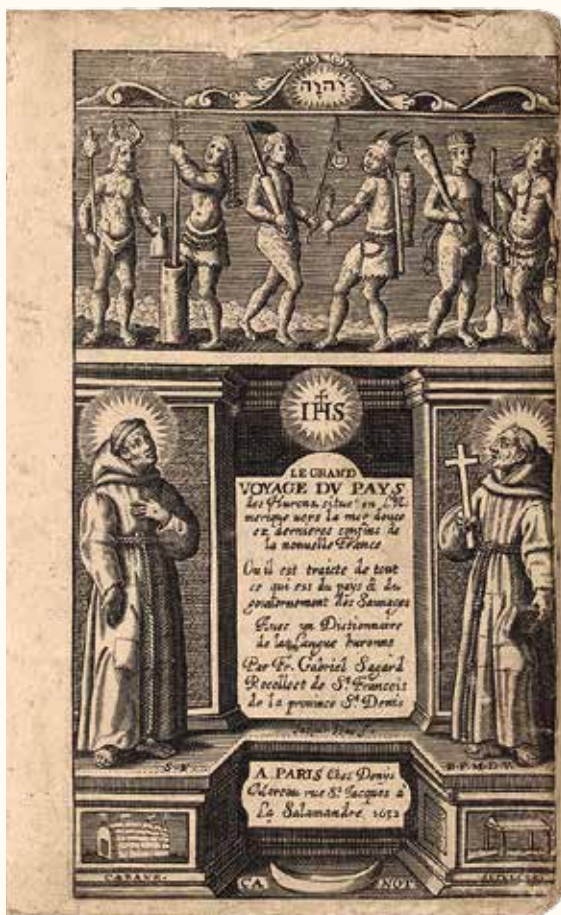 יהוה
IHS
LE GRAND
VOYAGE DV PAYS
des Hurons, situé en l'A
merique vers la mer douce
ez dernieres confins de
la nouuelle France
Ou il est traicté de tout
ce qui est du pays & du
gouuernement des Sauuages
Auec un Dictionnaire
de la Langue huronne
Par Fr. Gabriel Sagard
Recollect de St. François
de la prouince St. Denis
S·F·
B·F·M·D·V·
A PARIS Chez Denys
Moreau rue St. Jacques a
La Salamandre, 1632
CABANE·
CA NOT